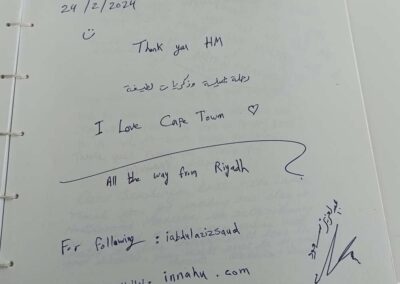 24/2/2024
Thank you HM
رحلة جميلة وذكريات لطيفة
I Love Cape Town ♡
All the way from Riyadh
For following : iabdulazizsaud
innahu.com
عبدالعزيز سعود